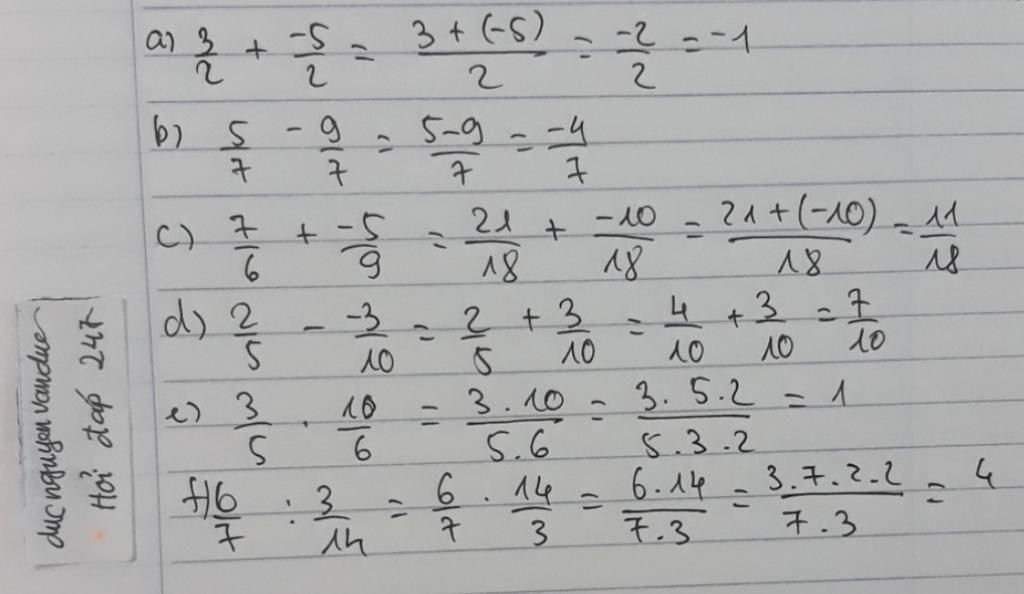 a) 3/2 + -5/2 = 3 + (-5)/2 = -2/2 = -1
b) 5/7 - 9/7 = 5-9/7 = -4/7
c) 7/6 + -5/9 = 21/18 + -10/18 = 21+(-10)/18 = 11/18
d) 2/5 - -3/10 = 2/5 + 3/10 = 4/10 + 3/10 = 7/10
e) 3/5 . 10/6 = 3.10/5.6 = 3.5.2/5.3.2 = 1
f) 6/7 : 3/14 = 6/7 . 14/3 = 6.14/7.3 = 3.7.2.2/7.3 = 4
duc nguyen van duc
Hỏi đáp 247